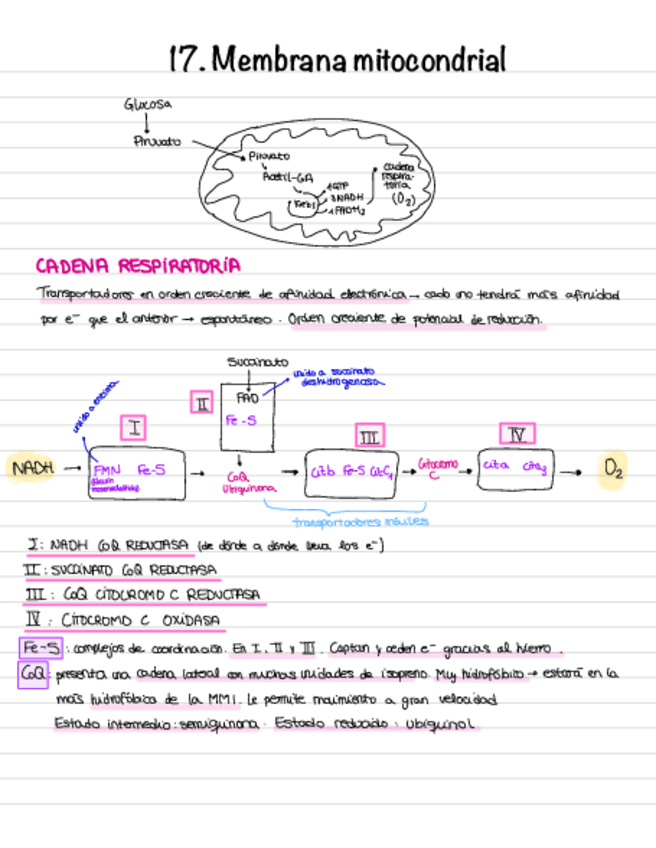 17. Membrana mitocondrial
Glucosa
Piruvato
Piruvato
Acetil-CoA
Krebs
1 GTP
3 NADH
1 FADH₂
cadena
respira-
toria
(O₂)
CADENA RESPIRATORIA
Transportadores en orden creciente de afinidad electrónica → cada uno tendrá más afinidad
por e⁻ que el anterior → espontáneo. Orden creciente de potencial de reducción.
Succinato
unido a succinato
deshidrogenasa
unido a enzima
II
FAD
Fe-S
I
III
IV
NADH
FMN Fe-S
CoQ
Ubiquinona
Citb Fe-S CitC₁
Citocromo
C
cita cita₃
O₂
transportadores móviles
I: NADH CoQ REDUCTASA (de dónde a dónde lleva los e⁻)
II: SUCCINATO CoQ REDUCTASA
III: CoQ CITOCROMO C REDUCTASA
IV: CITOCROMO C OXIDASA
Fe-S: complejos de coordinación. En I, II y III. Captan y ceden e⁻ gracias al hierro.
CoQ: presenta una cadena lateral con muchas unidades de isopreno. Muy hidrofóbico → estará en la
más hidrofóbica de la MMI. Le permite movimiento a gran velocidad
Estado intermedio: semiquinona. Estado reducido: ubiquinol